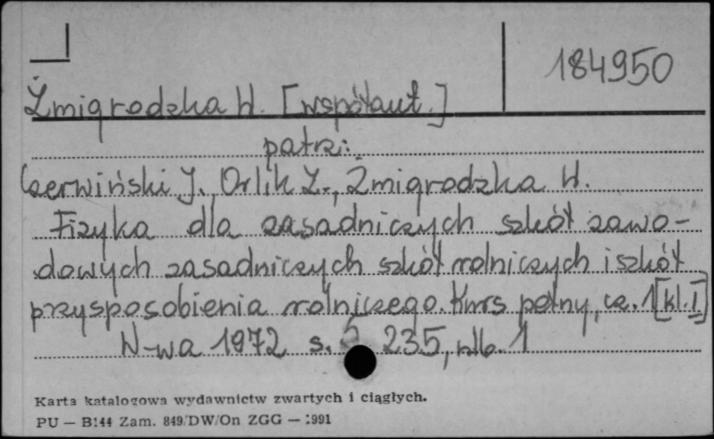 184950
Żmigrodzka H. [współaut.]
patrz:
Czerwiński J., Orlik Z., Żmigrodzka H.
Fizyka dla zasadniczych szkół zawo-
dowych zasadniczych szkół rolniczych i szkół
przysposobienia rolniczego. Kurs pełny, cz. 1 [kl. I]
W-wa 1972 s. 235, nlb. 1
Karta katalogowa wydawnictw zwartych i ciągłych.
PU — B144 Zam. 849/DW/On ZGG — 1991